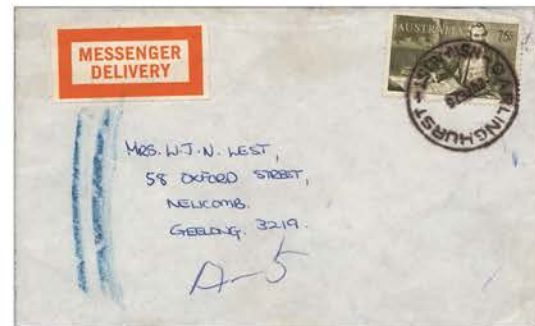 MESSENGER
DELIVERY
AUSTRALIA 75c
DARLINGHURST
MRS. W.J.N. WEST,
58 OXFORD STREET,
NEWCOMB.
GEELONG. 3219.
A-5